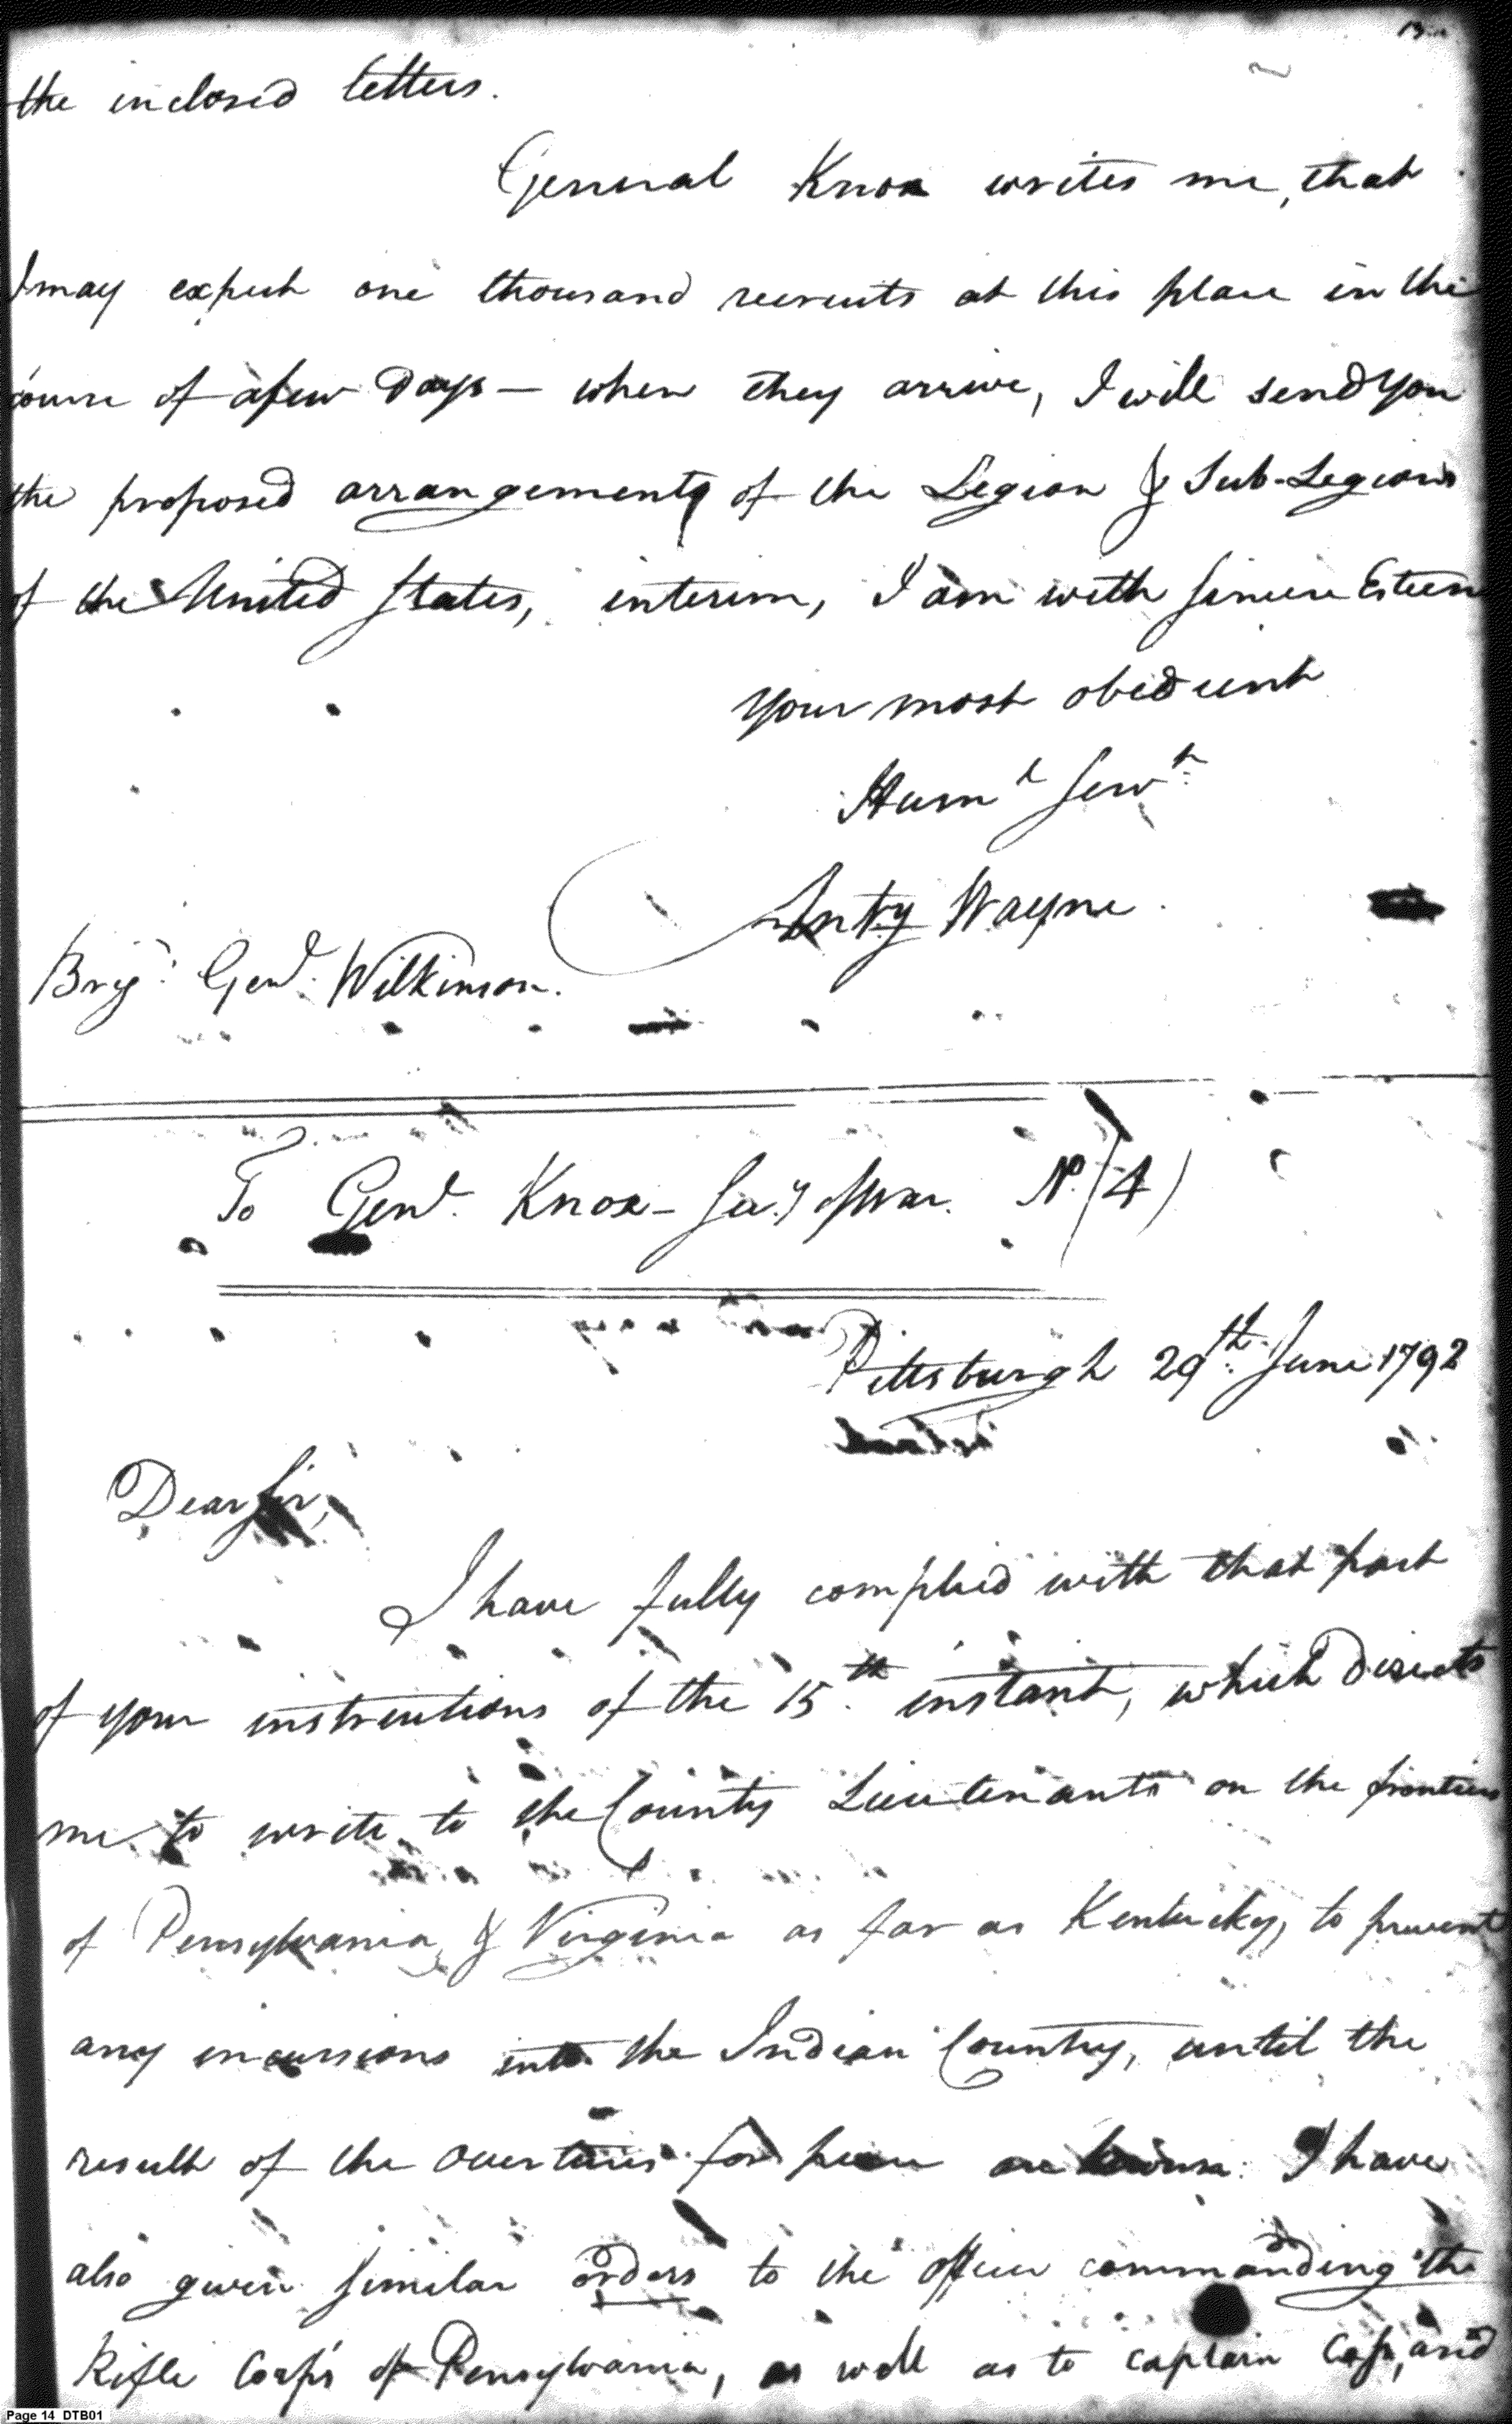 13
the inclosed letters.
General Knox writes me, that
I may expect one thousand recruits at this place in the
course of a few Days — when they arrive, I will send You
the proposed arrangements of the Legion & Sub-Legions
of the United States, interim, I am with sincere Esteem
Your most obedient
Hum.l Serv.t
Anty Wayne.
Brig.r Gen.l Wilkinson.
To Gen.l Knox - Sec.y of War. N.o (4)
Pittsburgh 29.th June 1792
Dear Sir,
I have fully complied with that part
of your instructions of the 15.th instant, which directs
me to write to the County Lieutenants on the frontiers
of Pensylvania, & Virginia as far as Kentucky, to prevent
any incursions into the Indian Country, until the
result of the overtures for peace are known. I have
also given similar orders to the officer commanding the
Rifle Corps of Pensylvania, as well as to captain Cass, and
Page 14 DTB01